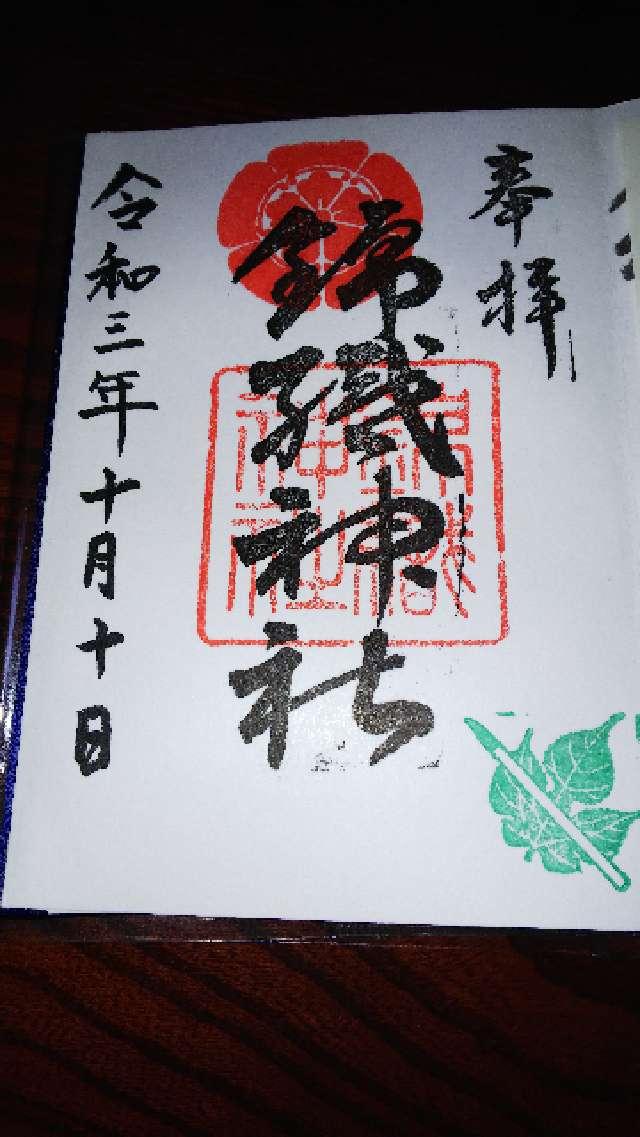 奉拝
錦織神社
錦織神社
令和三年十月十日